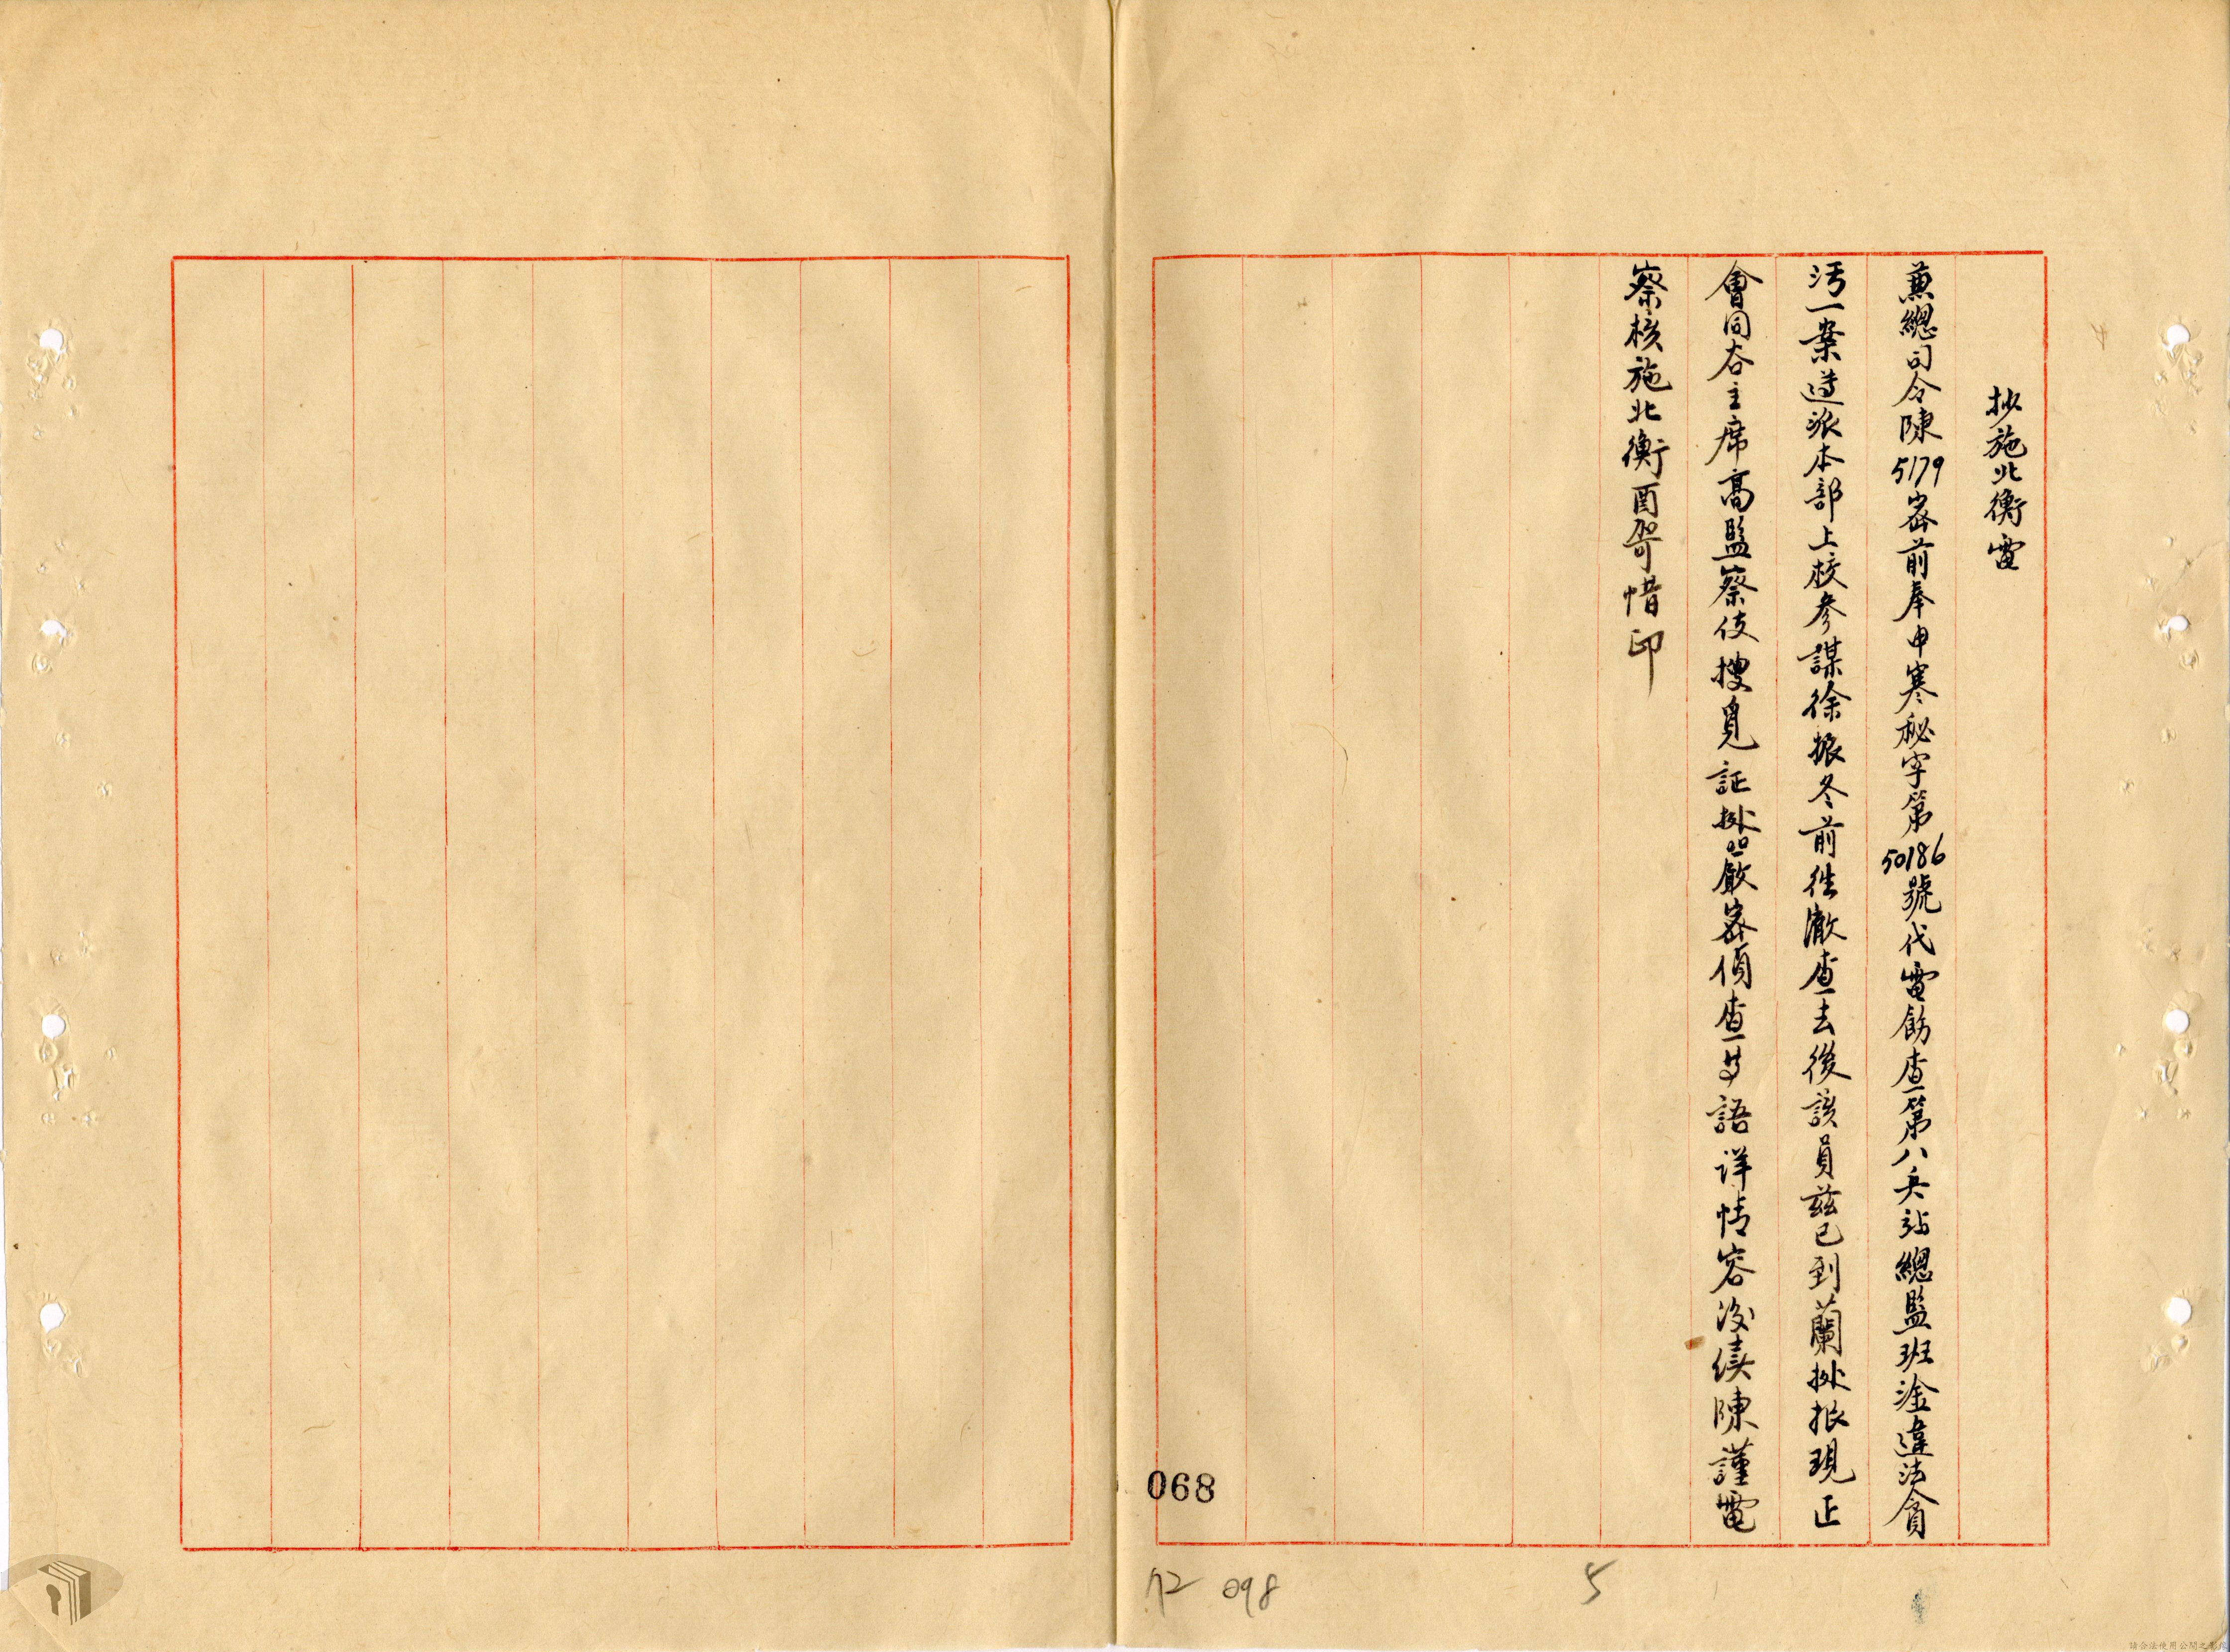 抄施北衡電
兼總司令陳5179密前奉申寒秘字第50186號代電飭查第八兵站總監班淦違法貪
污一案遵派本部上校參謀徐振冬前往澈查去後該員茲已到蘭據报現正
會同谷主席高監察使搜覓証據並嚴密偵查等語详情容後續陳謹電
察核施北衡酉哿惜印
068
72 098
5